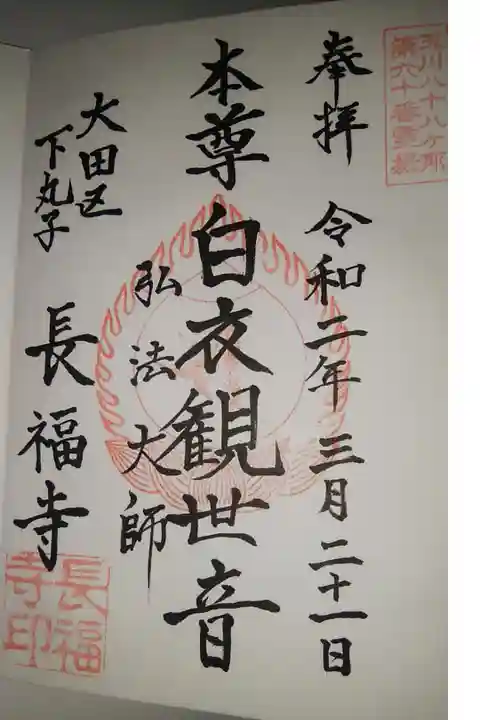 玉川八十八ヶ所
第六十番霊場
奉拝 令和二年 三月二十一日
本尊白衣観世音
弘法大師
大田区
下丸子
長福寺
長福
寺印